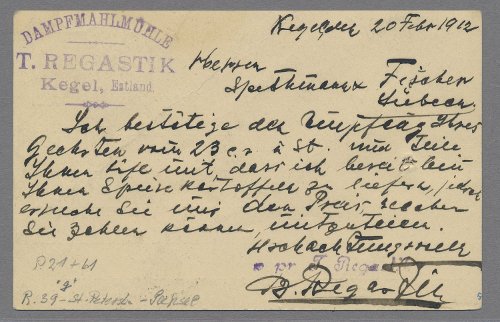 DAMPFMAHLMÜHLE
T. REGASTIK
Kegel, Estland.
Kegel den 20 Febr 1912
Herren
Spethmann & Fischer
Lübeck.
Ich bestätige den Empfang Ihres
Geehrten vom 23 c. a. St. und teile
Ihnen hife mit dass ich bereit bin
Ihnen Speisekartoffeln zu liefern, jedoch
ersuche Sie mir den Preis, welchen
Sie zahlen können, mitzuteilen.
Hochachtungsvoll
pr. T. Regastik
Regastik
P21+61
"g"
R. 39 - St. Petersb - Reval